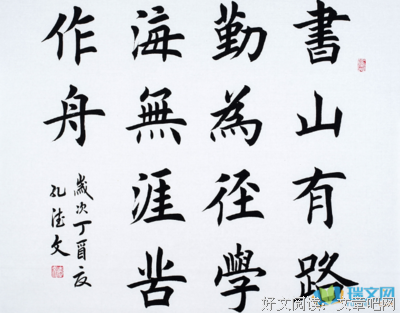 書山有路
勤為径學
海無涯苦
作舟
歲次丁酉夏
孔德文
瑞文网
好文阅读：文章吧网